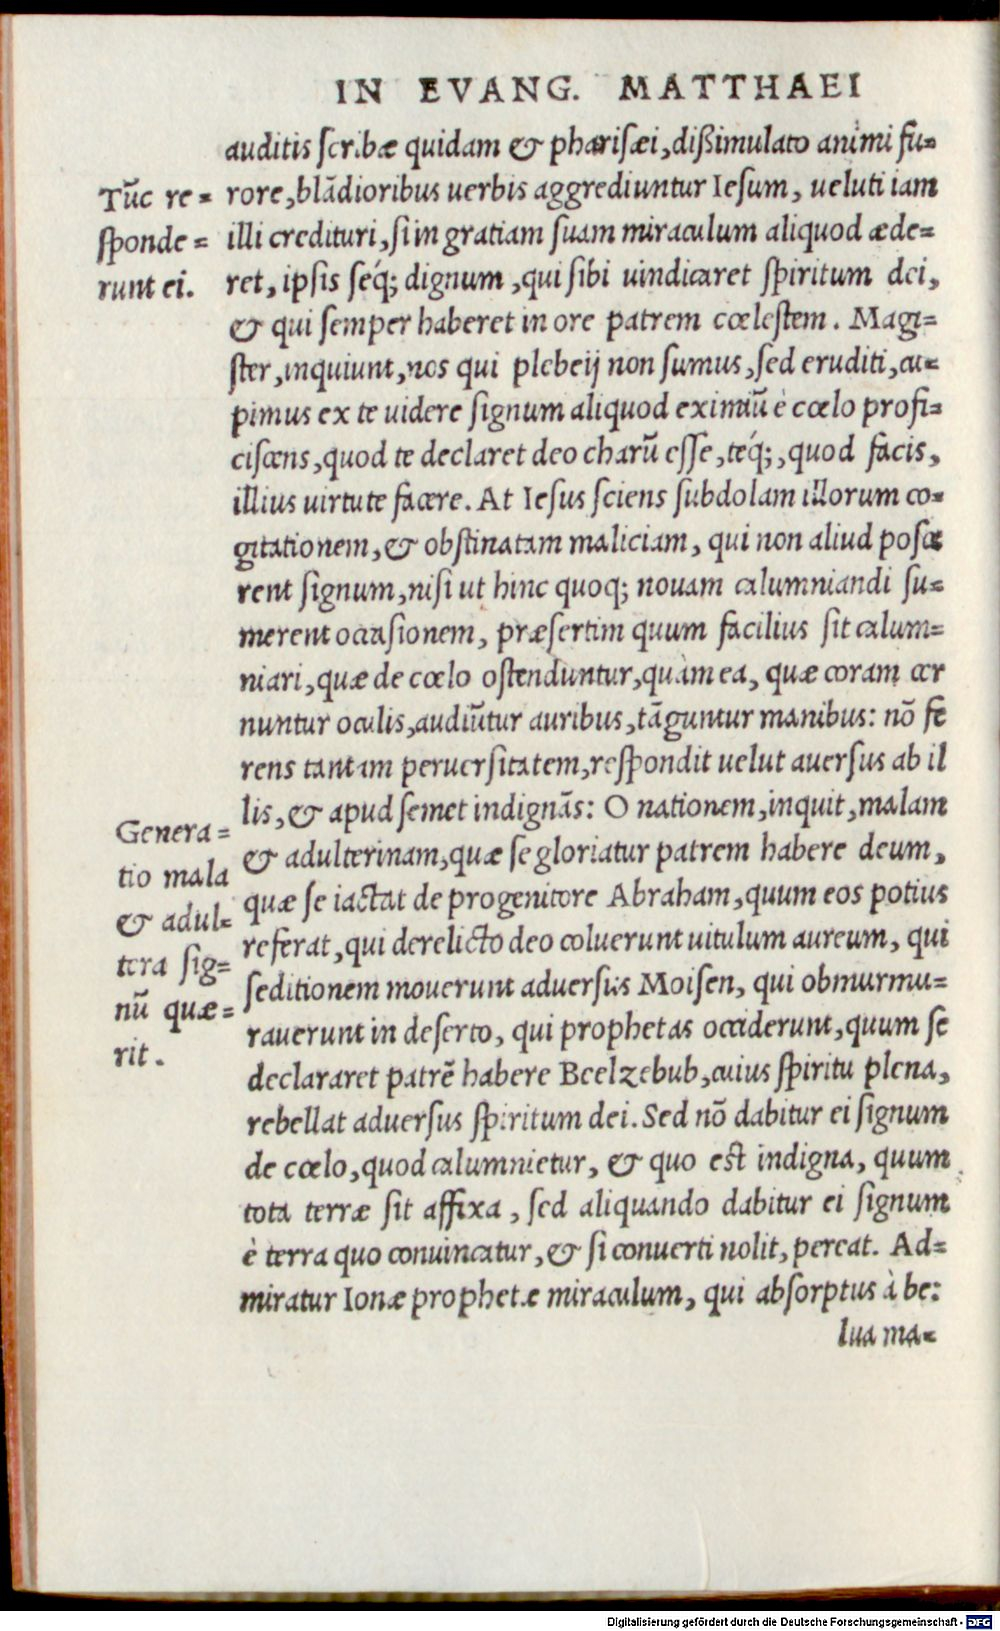 IN EVANG. MATTHAEI
auditis scribæ quidam & pharisæi, dißimulato animi fu=
rore, blādioribus uerbis aggrediuntur Iesum, ueluti iam
illi credituri, si in gratiam suam miraculum aliquod æde=
ret, ipsis séq; dignum, qui sibi uindicaret spiritum dei,
& qui semper haberet in ore patrem cœlestem. Magi=
ster, inquiunt, nos qui plebeij non sumus, sed eruditi, cu=
pimus ex te uidere signum aliquod eximiū è cœlo profi=
ciscens, quod te declaret deo charū esse, téq;, quod facis,
illius uirtute facere. At Iesus sciens subdolam illorum co=
gitationem, & obstinatam maliciam, qui non aliud posce
rent signum, nisi ut hinc quoq; nouam calumniandi su=
merent occasionem, præsertim quum facilius sit calum=
niari, quæ de cœlo ostenduntur, quàm ea, quæ coram cer
nuntur oculis, audiūtur auribus, tāguntur manibus: nō fe
rens tantam peruersitatem, respondit uelut auersus ab il
lis, & apud semet indignās: O nationem, inquit, malam
& adulterinam, quæ se gloriatur patrem habere deum,
quæ se iactat de progenitore Abraham, quum eos potius
referat, qui derelicto deo coluerunt uitulum aureum, qui
seditionem mouerunt aduersus Moisen, qui obmurmu=
rauerunt in deserto, qui prophetas occiderunt, quum se
declararet patrē habere Beelzebub, cuius spiritu plena,
rebellat aduersus spiritum dei. Sed nō dabitur ei signum
de cœlo, quod calumnietur, & quo est indigna, quum
tota terræ sit affixa, sed aliquando dabitur ei signum
è terra quo conuincatur, & si conuerti nolit, pereat. Ad=
miratur Ionæ prophetæ miraculum, qui absorptus à be:
lua ma=
Tūc re=
sponde=
runt ei.
Genera=
tio mala
& adul=
tera sig=
nū quæ=
rit.
Digitalisierung gefördert durch die Deutsche Forschungsgemeinschaft - DFG